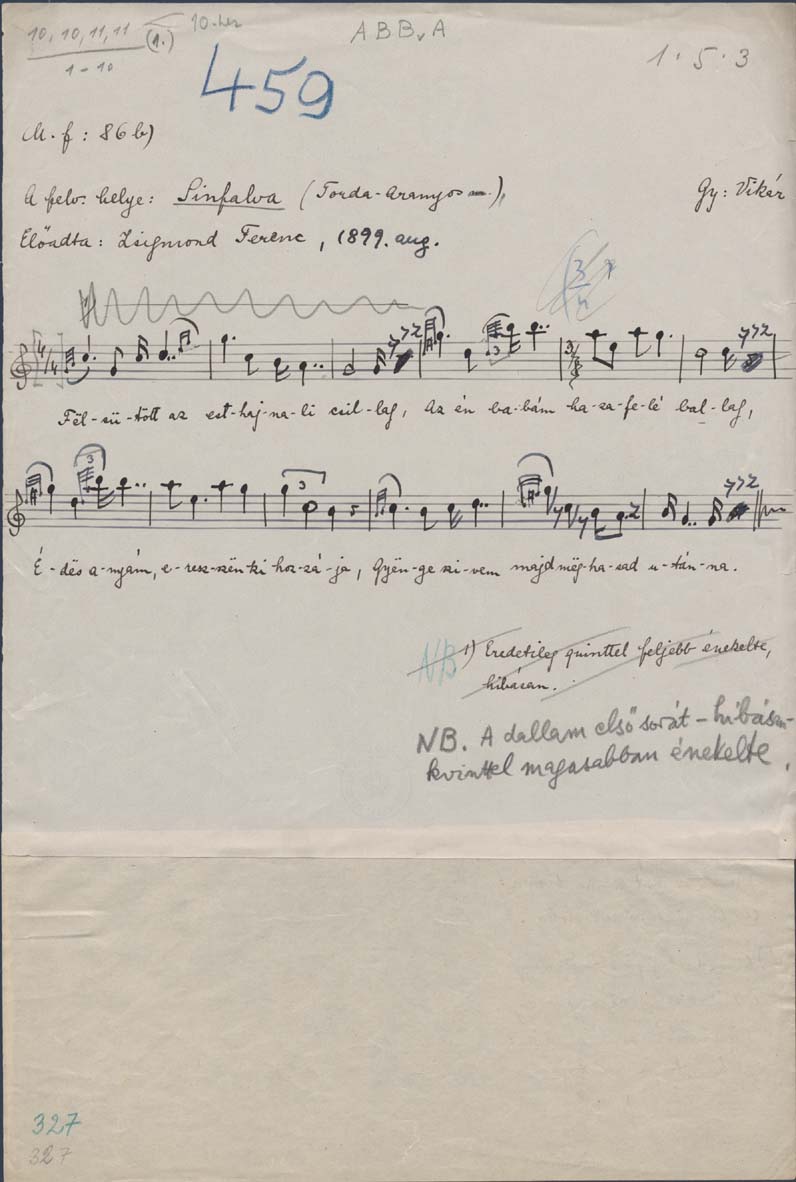 10, 10, 11, 11 (1.) 10-hez
1-10
A B Bv A
1 · 5 · 3
459
M. f: 86 b)
A felv. helye: Sinfalva (Torda-Aranyos m.), Gy: Vikár
Előadta: Zsigmond Ferenc, 1899. aug.
Föl-sü-tött az est-haj-na-li csil-lag, Az én ba-bám ha-za-fe-lé bal-lag,
3
3
É-dës a-nyám, e-resz-szën ki hoz-zá-ja, Gyën-ge szi-vem majd mëg-ha-sad u-tán-na.
NB 1) Eredetileg quinttel feljebb énekelte,
hibásan.
NB. A dallam első sorát - hibásan -
kvinttel magasabban énekelte.
327
327